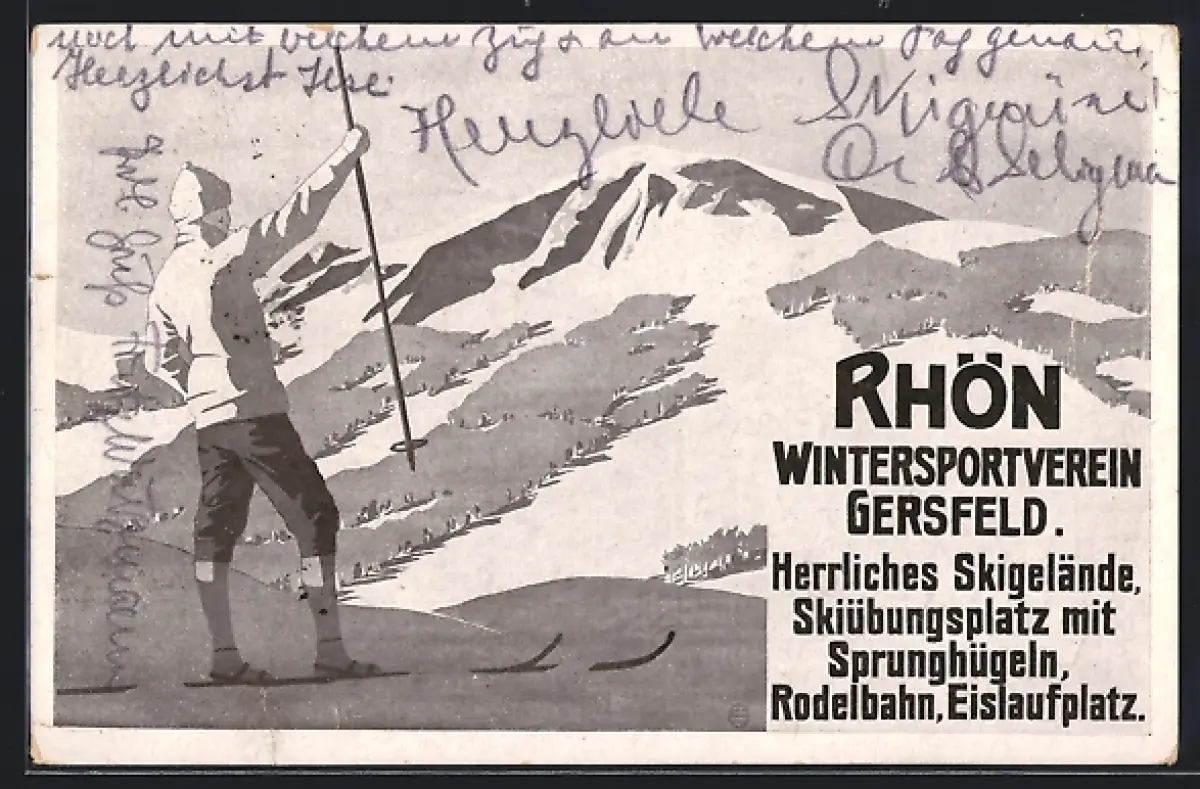 noch mit welchem Zug & an welchem Tag genau,
Herzlichst Ilse
Herzliche
RHÖN
WINTERSPORTVEREIN
GERSFELD.
Herrliches Skigelände,
Skiübungsplatz mit
Sprunghügeln,
Rodelbahn, Eislaufplatz.